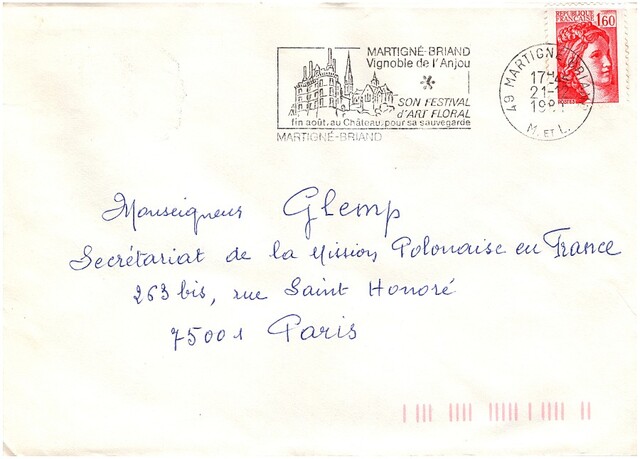 MARTIGNÉ-BRIAND
Vignoble de l'Anjou
SON FESTIVAL
d'ART FLORAL
fin août, au Château, pour sa sauvegarde
MARTIGNÉ-BRIAND
REPUBLIQUE
FRANCAISE
1,60
49 MARTIGNÉ-BRIAND
17H
21-
M. ET L.
Monseigneur Glemp
Secrétariat de la Mission Polonaise en France
263 bis, rue Saint Honoré
75001 Paris